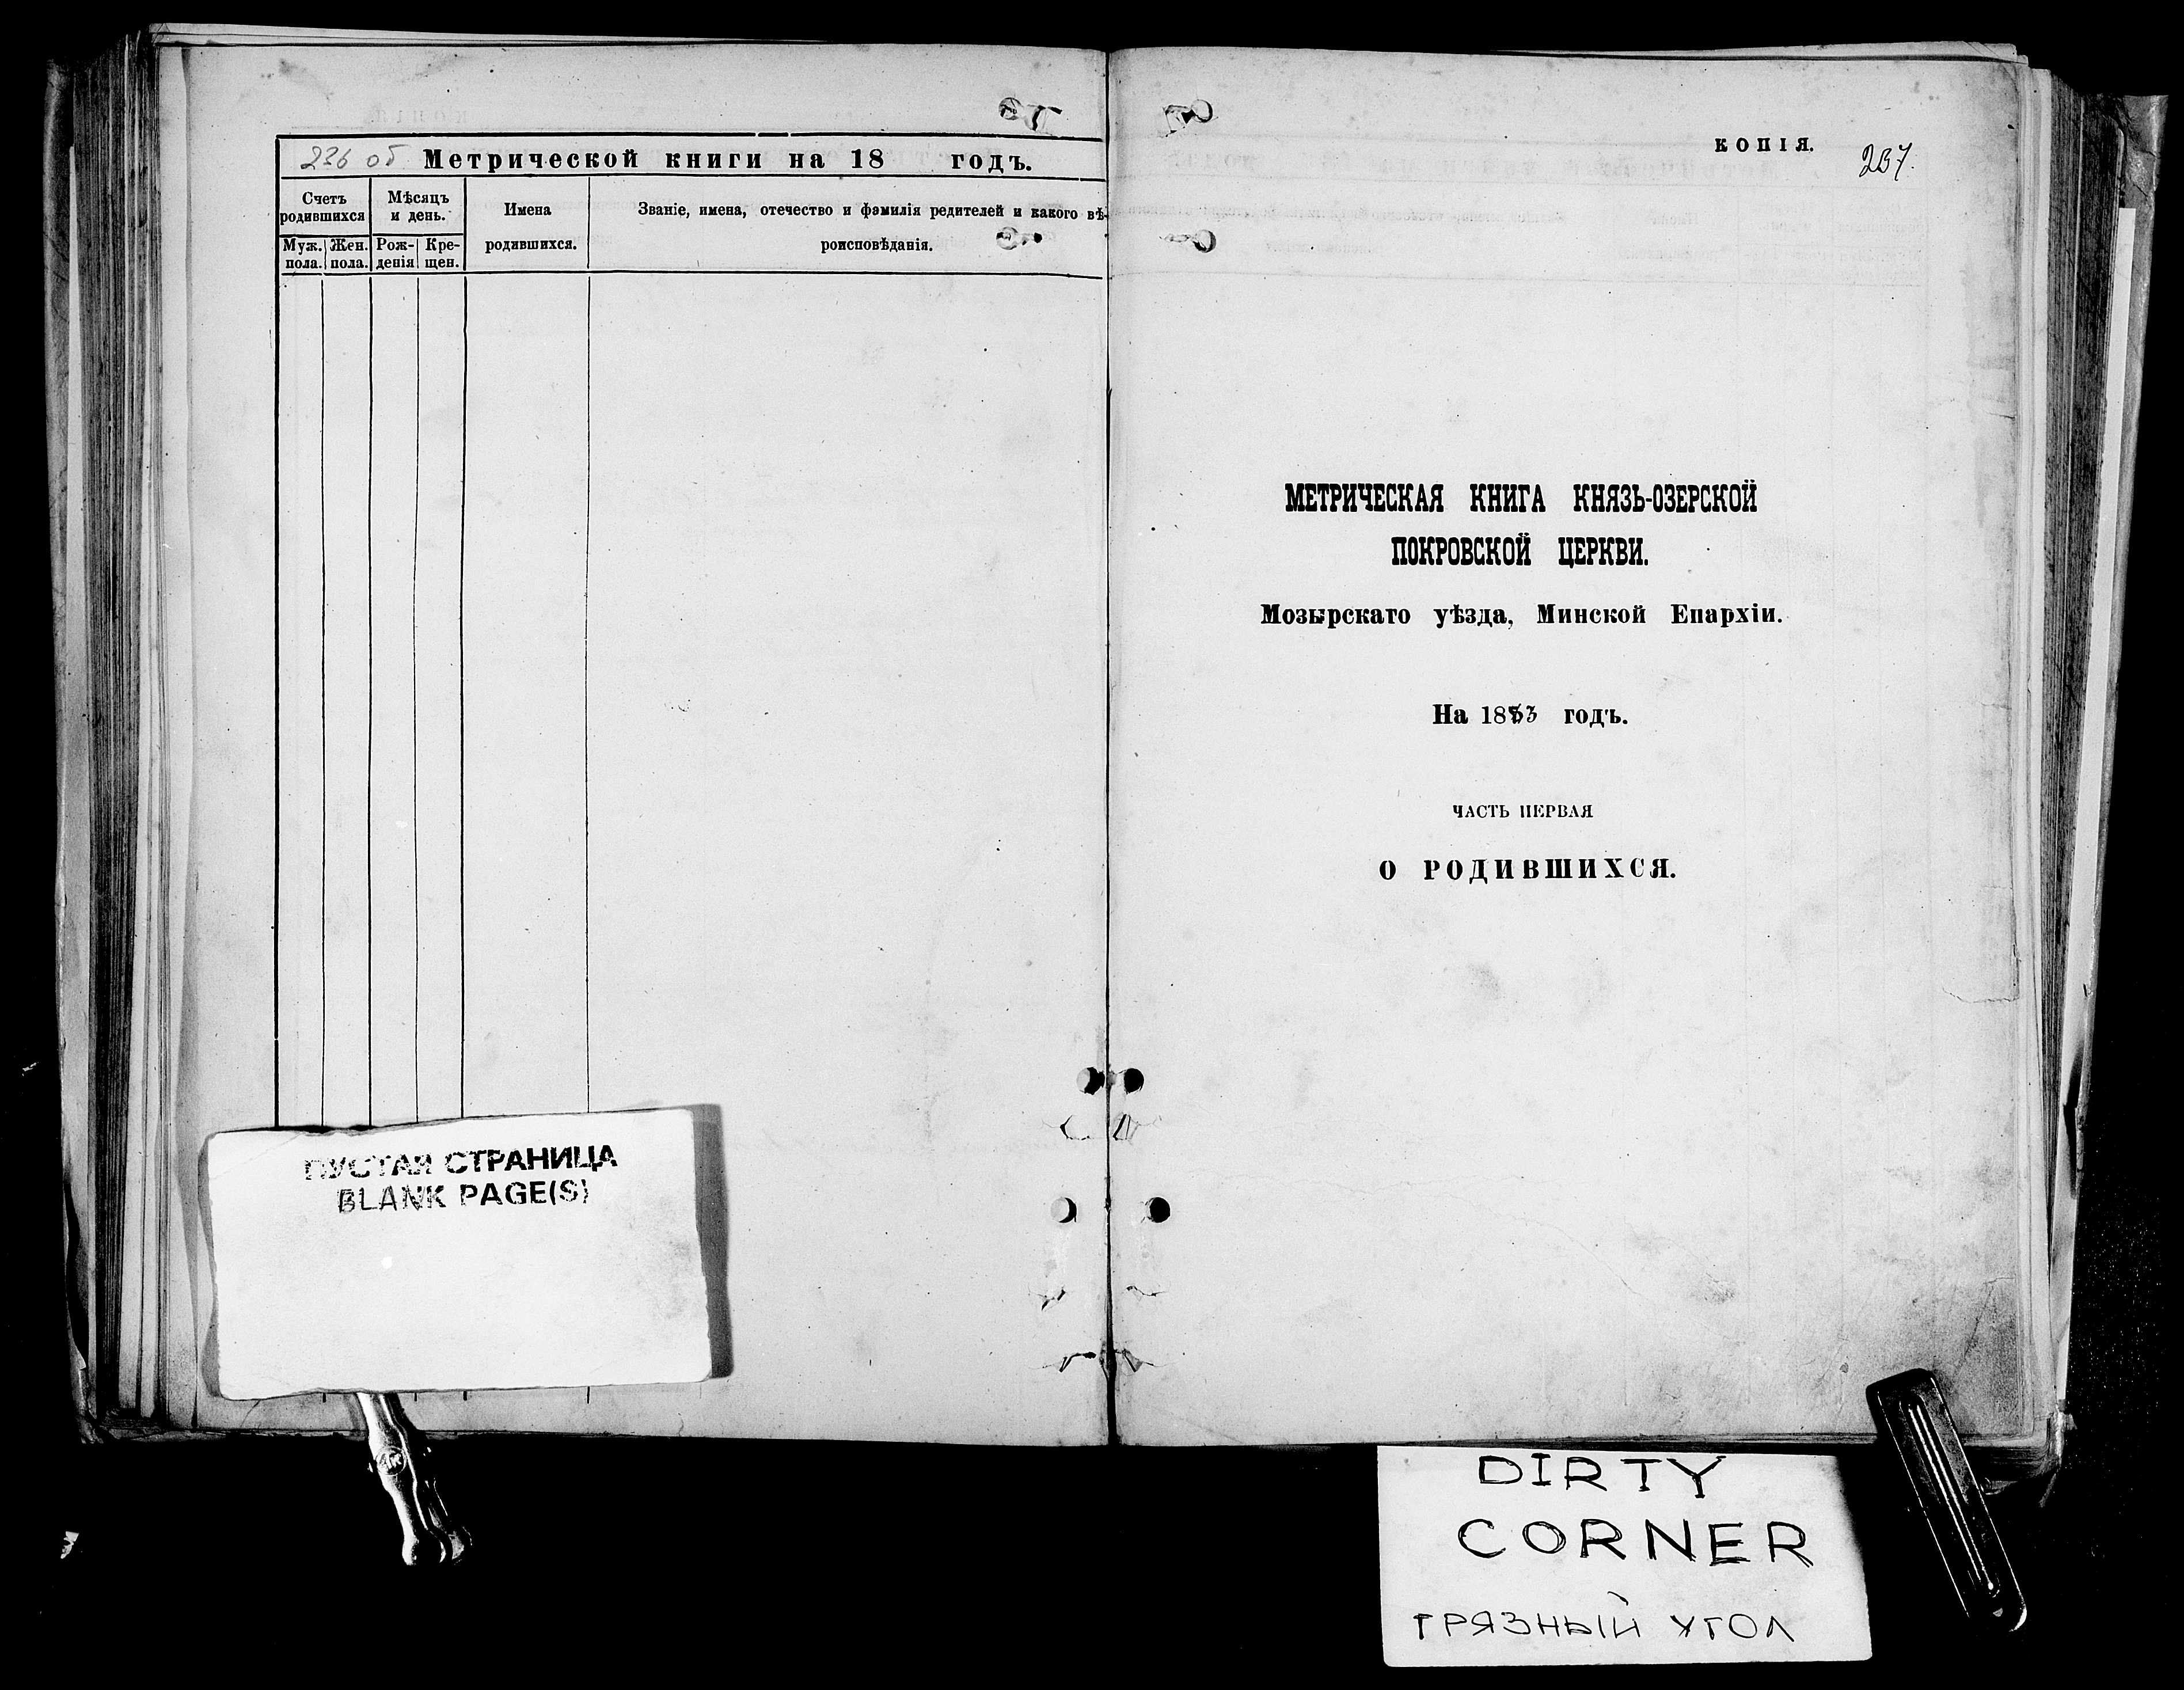 236 об Метрической книги на 18 годъ.
Счетъ родившихся
Мѣсяцъ и день.
Имена родившихся.
Званіе, имена, отечество и фамилія родителей и какого вѣ-
роисповѣданія.
Муж. пола.
Жен. пола.
Рож-денія
Кре- щен.
ПУСТАЯ СТРАНИЦА
BLANK PAGE(S)
КОПІЯ.
237.
МЕТРИЧЕСКАЯ КНИГА КНЯЗЬ-ОЗЕРСКОЙ
ПОКРОВСКОЙ ЦЕРКВИ.
Мозырскаго уѣзда, Минской Епархіи.
На годъ.
ЧАСТЬ ПЕРВАЯ
О РОДИВШИХСЯ.
DIRTY
CORNER
ГРЯЗНЫЙ УГОЛ